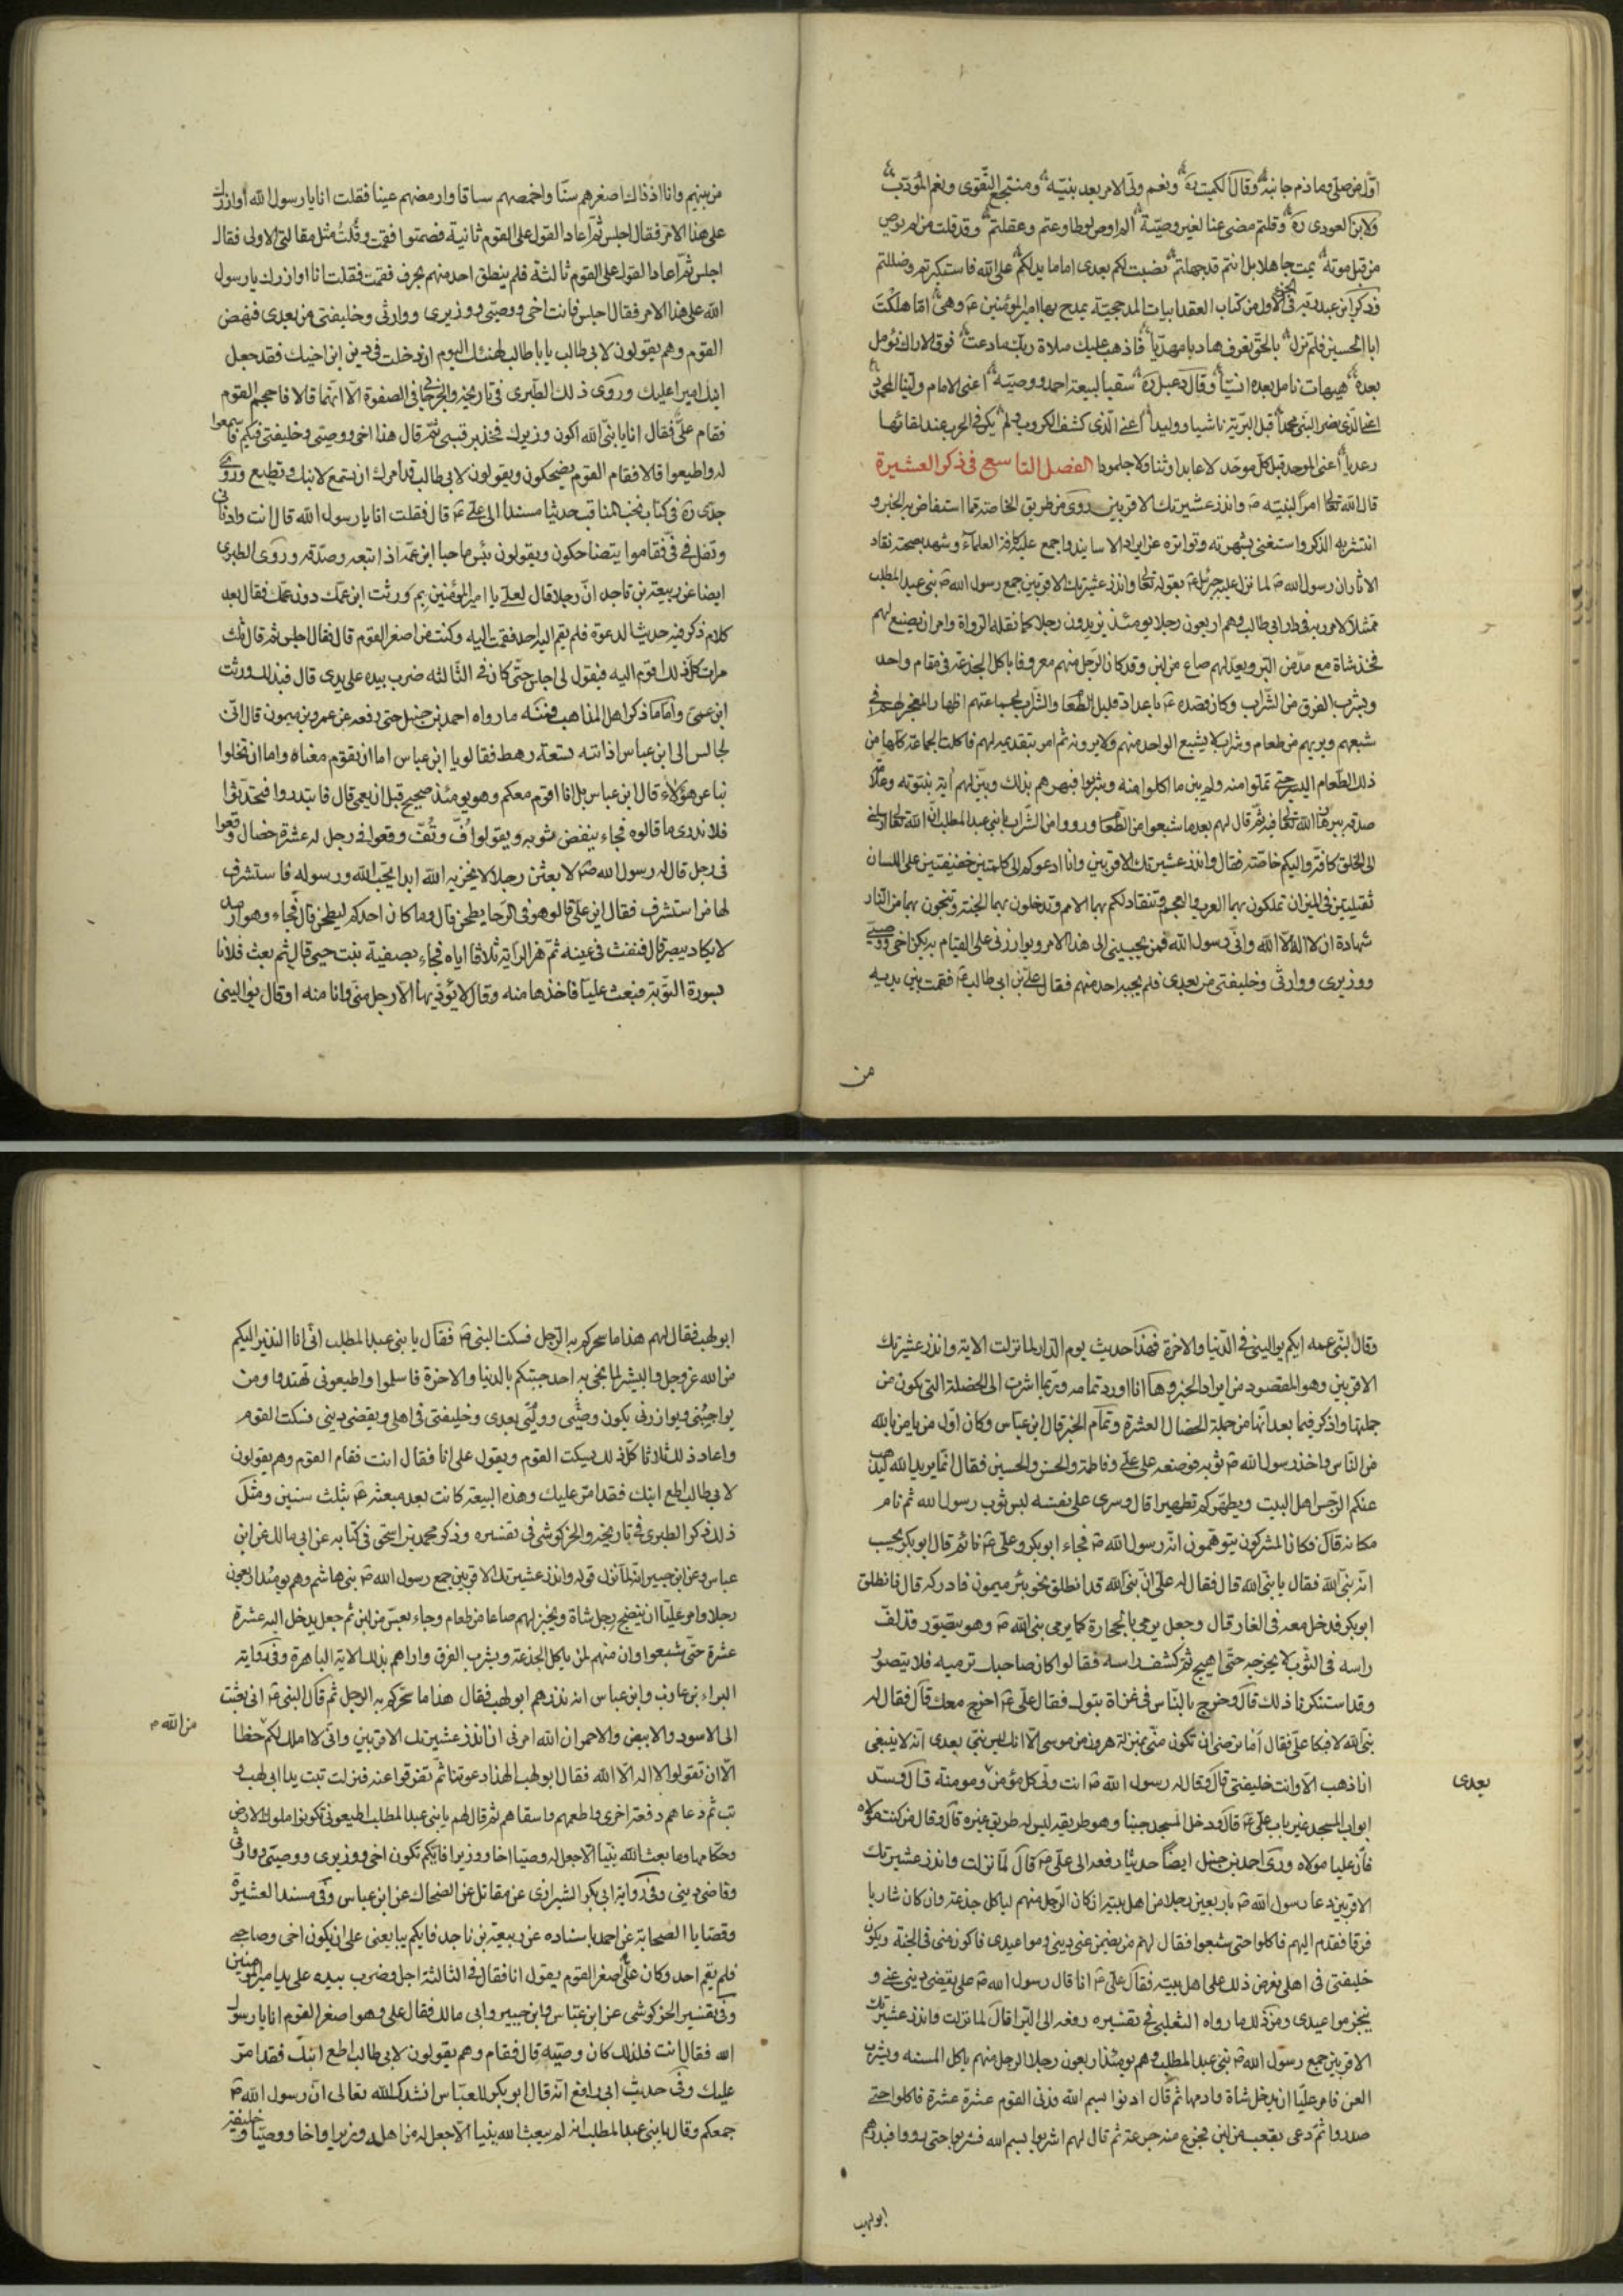 اوّل من صلّى وما ذم جانبه وقال الكميت ره ونعم ولىّ الامر بعد نبيّه ومنتجع التّقوى ونعم المؤدّب
ولابن العودى ره وقلتم مضى عنا لغير وصيّة الم اوص لو طاوعتم وعقلتم وقد قلت من لم يوص
من قبل موته يمت جاهلا بل انتم قد جهلتم نصبت لكم بعدى اماما يدلكم على الله فاستكبرتم وضللتم
وذكر ابن عبد ربه فى الجزء الاول من كتاب العقد ابيات المدجحيّة يمدح بها امير المؤمنين ع وهى اما هلكت
ابا الحسين فلم تزل بالحقّ تعرف هاديا مهديّا فاذهب عليك صلاة ربك ما دعت فوق الاراك
بعده هيهات نامل بعده انسيّا وقال دعبل ره سقيا لبيعة احمد ووصيّه اعنى الامام وليّنا المحسودا
اعنى الّذى نصر النبى محمدا قبل البريّة ناشيا ووليدا اعنى الّذى كشف الكروب ولم يكن فى الحرب عند لقائها
رعديدا اعنى الموحد قبل كلّ موحّد لا عابدا وثنا ولا جلمودا الفصل التاسع فى ذكر العشيرة
قال الله تعالى امرا لنبيّه ص وانذر عشيرتك الاقربين روى من طريق الخاصة مما استفاض به الخبر و
انتشر به الذكر واستغنى بشهرته وتواتره عن ايراد الاسانيد واجمع عليه كافة العلماء وشهد بصحته نقاد
الاثار ان رسول الله ص لما نزل عليه جبرئيل ع بقوله تعالى وانذر عشيرتك الاقربين جمع رسول الله ص بنى عبد المطلب
ممتثلا لامر ربه فى دار ابى طالب وهم اربعون رجلا يومئذ يزيدون رجلا كما نقله الرواة وامر ان يصنع لهم
فخذ شاة مع مدّ من البر ويعدّ لهم صاع من لبن وقد كان الرّجل منهم معروفا باكل الجذعة فى مقام واحد
ويشرب الفرق من الشّراب وكان قصده ع باعداد قليل الطعام والشّراب لجماعتهم اظهار المعجز لهم فى
شبعهم وريهم من طعام وشراب لا يشبع الواحد منهم ولا يرويه ثم امر بتقديمه لهم فاكلت الجماعة كلها من
ذلك الطّعام اليسير حتى تملّوا منه ولم يبن ما اكلوا منه وشربوا فبهرهم بذلك وبيّن لهم آية نبوته وعلامة
صدقه ببرهان الله تعالى فيه ثمّ قال لهم بعد ما شبعوا من الطّعام ورووا من الشّراب يا بنى عبد المطلب انّ الله تعالى ارسلنى
الى الخلق كافة واليكم خاصّة فقال وانذر عشيرتك الاقربين وانا ادعوكم الى كلمتين خفيفتين على اللسان
ثقيلتين فى الميزان تملكون بهما العرب والعجم وتنقاد لكم بهما الامم وتدخلون بهما الجنة وتنجون بهما من النار
شهادة ان لا اله الا الله وانّى رسول الله فمن يجيبنى الى هذا الامر ويوازرنى على القيام به يكن اخى ووصيّى
ووزيرى ووارثى وخليفتى من بعدى فلم يجبه احد منهم فقال علىّ بن ابى طالب ع فقمت بين يديه
من
من بينهم وانا اذ ذاك اصغرهم سنّا واحمصهم ساقا وارمصهم عينا فقلت انا يا رسول الله اوازرك
على هذا الامر فقال اجلس ثمّ اعاد القول على القوم ثانية فصمتوا فقمت وقُلتُ مثل مقالتى الاولى فقال
اجلس ثمّ اعاد القول على القوم ثالثة فلم ينطق احد منهم بحرف فقمت فقلت انا اوازرك يا رسول
الله على هذا الامر فقال اجلس فانت اخى ووصيّى ووزيرى ووارثى وخليفتى من بعدى فنهض
القوم وهم يقولون لابى طالب يا با طالب لهنئك اليوم ان دخلت فى دين ابن اخيك فقد جعل
ابنك اميرا عليك وروى ذلك الطّبرى فى تاريخه والخرجانى فى الصفوة الّا انّهما قالا فاحجم القوم
فقام علىّ فقال انا يا نبىّ الله اكون وزيرك فاخذ برقبتى ثمّ قال هذا اخى ووصيى وخليفتى فيكم فاسمعوا
له واطيعوا قالا فقام القوم يضحكون ويقولون لابى طالب قد امرك ان تسمع لابنك وتطيع وروى
جدّى ره فى كتاب نخب المناقب حديثا مسندا الى علىّ ع قال فقلت انا يا رسول الله قال انت وادنانى
وتفل فى فىّ فقاموا يتضاحكون ويقولون بئس ما حبا ابن عمّه اذ اتبعه وصدّقه وروى الطبرى
ايضا عن ربيعة بن ناجد انّ رجلا قال لعلىّ يا امير المؤمنين بم ورثت ابن عمّك دون عمّك فقال بعد
كلام ذكر فيه حديث الدعوة فلم يقم اليه احد فقمت اليه وكنت من اصغر القوم قال فقال اجلس ثم قال ثلث
مرات كلّ ذلك اقوم اليه فيقول لى اجلس حتّى كان فى الثّالثه ضرب بيده على يدى قال فبذلك ورثت
ابن عمى وامّا ما ذكر اهل المذاهب فمنه ما رواه احمد بن حنبل حتى رفعه عن عمرو بن ميمون قال انّى
لجالس الى ابن عباس اذ اتته تسعة رهط فقالوا يا ابن عباس اما ان تقوم معنا واما ان تخلوا
بنا عن هؤلاء قال ابن عباس بل انا اقوم معكم وهو يومئذ صحيح قبل ان يعمى قال فابتدروا فتحدّثوا
فلا ندرى ما قالوه فجاء ينفض ثوبه ويقول اُفّ وتُفّ وقعوا فى رجل له عشرة خصال وقعوا
فى رجل قال له رسول الله ص لابعثن رجلا لا يخزيه الله ابدا يحبّ الله ورسوله فاستشرف
لها من استشرف فقال اين علىّ قالوا هو فى الرّحا يطحن قال وما كان احدكم ليطحن قال فجاء وهو ارمد
لا يكاد يبصر قال فنفث فى عينه ثمّ هز الراية ثلاثا فاعطاها اياه فجاء بصفية بنت حيى قال ثم بعث فلانا
بسورة التّوبة فبعث عليّا فاخذها منه وقال لا يؤدّيها الّا رجل منى وانا منه او قال يوالينى
وقال لبنى عمه ايكم يوالينى فى الدّنيا والاخرة فهذا حديث يوم الدار لما نزلت الاية وانذر عشيرتك
الاقربين وهو المقصود من ايراد الخبر وها انا اورد تمامه وربّما اشرت الى الخصلة التى تكون من
جملتها واذكر فيما بعد انّها من جملة الخصال العشرة وتمام الخبر قال ابن عبّاس وكان اوّل من امن بالله
من النّاس واخذ رسول الله ص ثوبه فوضعه على علىّ وفاطمة والحسن والحسين فقال انّما يريد الله ليذهب
عنكم الرّجس اهل البيت ويطهّركم تطهيرا قال وسرى على نفسه لبس ثوب رسول الله ثم نام
مكانه قال فكان المشركون يتوهّمون انّه رسول الله ص فجاء ابو بكر وعلىّ ع نائم قال ابو بكر يحسب
انّه نبىّ الله فقال يا نبىّ الله قال فقال له علىّ انّ نبىّ الله قد انطلق نحو بئر ميمون فادركه قال فانطلق
ابو بكر فدخل معه فى الغار قال وجعل يرمى بالحجارة كما يرمى نبىّ الله ص وهو يتضوّر قد لفّ
راسه فى الثّوب لا يخرجه حتّى اصبح ثمّ كشف راسه فقالوا كان صاحبك نرميه فلا يتضوّر
وقد استنكرنا ذلك قال وخرج بالنّاس فى غزاة تبوك فقال علىّ ع اخرج معك قال فقال له
نبىّ الله لا فبكا علىّ فقال اما ترضى ان تكون منّى بمنزلة هرون من موسى الّا انك ليس نبىّ بعدى انّه لا ينبغى
ان اذهب الّا وانت خليفتى قال وقال له رسول الله ص انت ولىّ كل مؤمن ومومنة قال وسدّ
بعدى
ابواب المسجد غير باب علىّ ع قال ودخل المسجد جنبا وهو طريقه ليس له طريق غيره قال وقال من كنت مولاه
فانّ عليا مولاه وروى احمد بن حنبل ايضا حديثا رفعه الى علىّ ع قال لمّا نزلت وانذر عشيرتك
الاقربين دعا رسول الله ص باربعين رجلا من اهل بيته ان كان الرّجل منهم لياكل جذعة وان كان شاربا
فرقا فقدم اليهم فاكلوا حتى شبعوا فقال لهم من يضمن عنى دينى ومواعيدى فاكون منى فى الجنة ويكون
خليفتى فى اهلى يعرض ذلك على اهل بيته فقال علىّ ع انا قال رسول الله ص على يقضى دينى عنى و
ينجز مواعيدى ومن ذلك ما رواه الثعلبى فى تفسيره رفعه الى البرا قال لما نزلت وانذر عشيرتك
الاقربين جمع رسول الله ص بنى عبد المطلب وهم يومئذ اربعون رجلا الرجل منهم ياكل المسنه ويشرب
العس فامر عليّا ان يدخل شاة فادمها ثم قال ادنوا بسم الله فدنى القوم عشرة عشرة فاكلوا حتى
صدروا ثمّ دعى بقعب من لبن فجرع منه جرعة ثم قال لهم اشربوا بسم الله فشربوا حتى رووا فبدرهم
ابو لهب
ابو لهب فقال لهم هذا ما سحركم به الرّجل فسكت النبى ص فقال يا بنى عبد المطلب انّى انا النذير اليكم
من الله عز وجل والبشير لما يجئ به احد جئتكم بالدنيا والاخرة فاسلموا واطيعونى تهتدوا ومن
يواخينى ويوازرنى يكون وصيّى ووليّى بعدى وخليفتى فى اهلى ويقضى دينى فسكت القوم
واعاد ذلك ثلاثا كلّ ذلك يسكت القوم ويقول على انا فقال انت فقام القوم وهم يقولون
لابى طالب اطع ابنك فقد امّر عليك وهذه البيعة كانت بعد مبعثه ع بثلث سنين ومثل
ذلك ذكر الطبرى فى تاريخه والخركوشى فى تفسيره وذكر محمد بن اسحق فى كتابه عن ابى مالك عن ابن
عباس وعن ابن جبير انّه لما نزل قوله وانذر عشيرتك الاقربين جمع رسول الله ص بنى هاشم وهم يومئذ اربعون
رجلا وامر عليّا ان ينضج رجل شاة ويخبز لهم صاعا من طعام وجاء بعسّ من لبن ثم جعل يدخل اليه عشرة
عشرة حتى شبعوا وان منهم لمن ياكل الجذعة ويشرب الفرق واراهم بذلك الاية الباهرة وفى رواية
البراء بن عازب وابن عباس انه بدرهم ابو لهب فقال هذا ما سحركم به الرجل ثم قال النبى ص انى بعثت
الى الاسود والابيض والاحمر ان الله امرنى ان انذر عشيرتك الاقربين وانّى لا املك لكم حظا
من الله م
الّا ان تقولوا لا اله الا الله فقال ابو لهب الهذا دعوتنا ثمّ تفرقوا عنه فنزلت تبت يدا ابى لهب و
تب ثم دعاهم دفعة اخرى واطعمهم واسقاهم ثم قال لهم يا بنى عبد المطلب اطيعونى تكونوا ملوك الارض
وحكامها وما بعث الله نبيّا الا جعل له وصيّا اخا ووزيرا فايّكم يكون اخى ووزيرى ووصيّى ووارثى
وقاضى دينى وفى رواية ابى بكر الشيرازى عن مقاتل عن الضحاك عن ابن عباس وفى مسند العشيرة
وفضايا الصحابة عن احمد باسناده عن ربيعة بن ناجد فايكم يبايعنى على ان يكون اخى وصاحبى
فلم يقم احد وكان علىّ اصغر القوم يقول انا فقال فى الثالثة اجل وضرب بيده على يد امير المؤمنين
وفى تفسير الخركوشى عن ابن عبّاس وابن جبير وابى مالك فقال على وهو اصغر القوم انا يا رسول
الله فقال انت فلذلك كان وصيّه قال فقام وهم يقولون لابى طالب اطع ابنك فقد امّر
عليك وفى حديث ابى رافع انّه قال ابو بكر للعبّاس انشدك الله تعالى انّ رسول الله ص
جمعكم وقال يا بنى عبد المطلب انه لم يبعث الله نبيا الا جعل له من اهله وزيرا واخا ووصيّا وخليفة